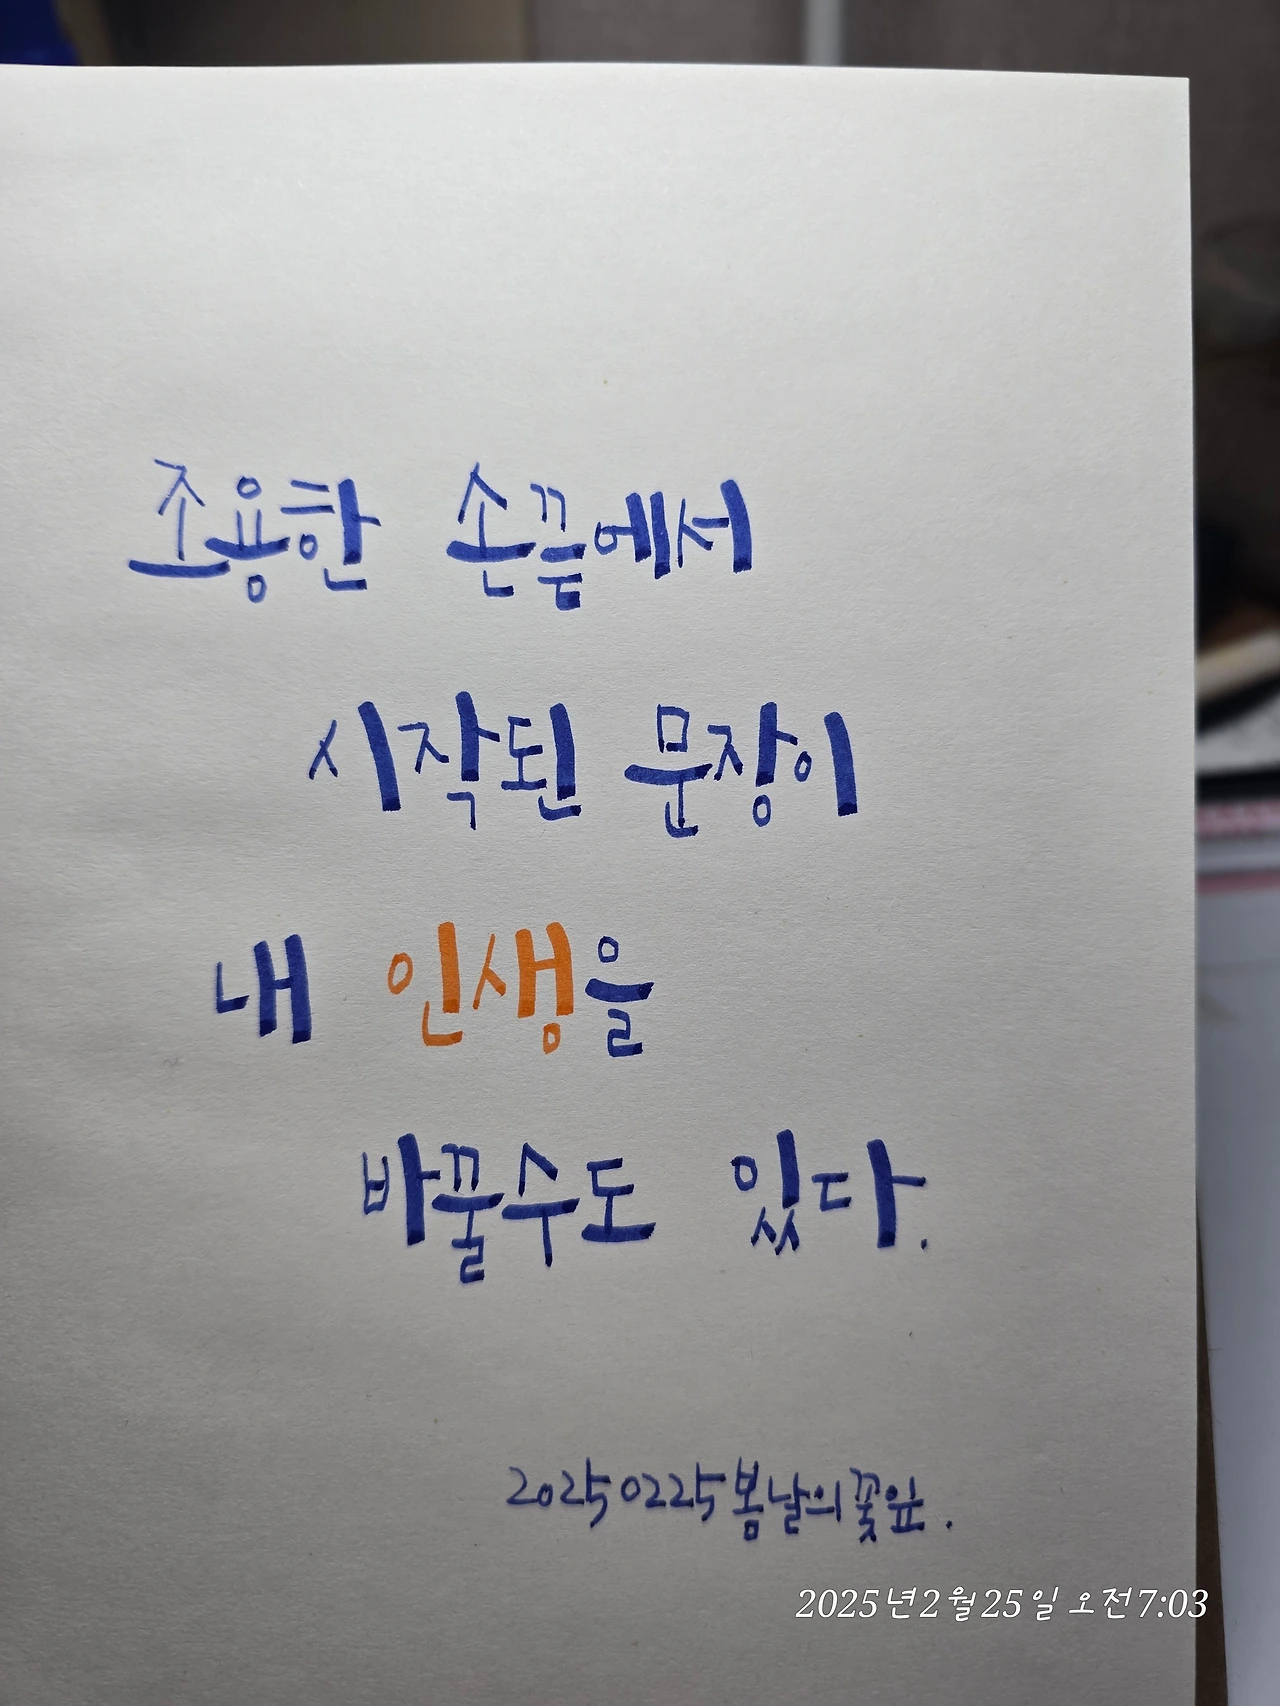 조용한 손끝에서
시작된 문장이
내 인생을
바꿀수도 있다.
20250225봄날의꽃잎.
2025년2월25일 오전7:03